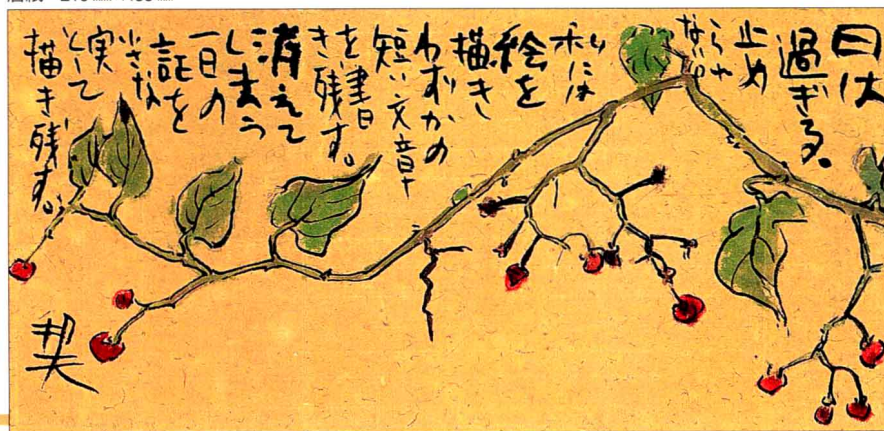 日は
過ぎる。
止め
られ
ない。
私には
絵を
描き
わずかの
短い文章
を書き残す。
消えて
しまう
一日の
証を
小さな
実として
描き残す。